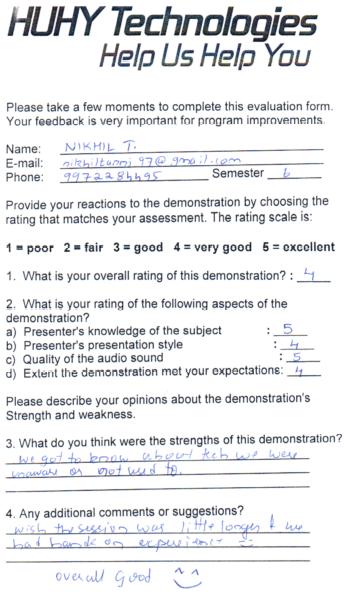 HUHY Technologies
Help Us Help You
Please take a few moments to complete this evaluation form.
Your feedback is very important for program improvements.
Name: NIKHIL T.
E-mail: 97@gmail.com
Phone: Semester 6
Provide your reactions to the demonstration by choosing the
rating that matches your assessment. The rating scale is:
1 = poor 2 = fair 3 = good 4 = very good 5 = excellent
1. What is your overall rating of this demonstration? : 4
2. What is your rating of the following aspects of the
demonstration?
a) Presenter's knowledge of the subject : 5
b) Presenter's presentation style : 4
c) Quality of the audio sound : 5
d) Extent the demonstration met your expectations: 4
Please describe your opinions about the demonstration's
Strength and weakness.
3. What do you think were the strengths of this demonstration?
we got to know about tech we were
unaware or not used to.
4. Any additional comments or suggestions?
wish the session was little longer & we
had hands on experience
overall Good